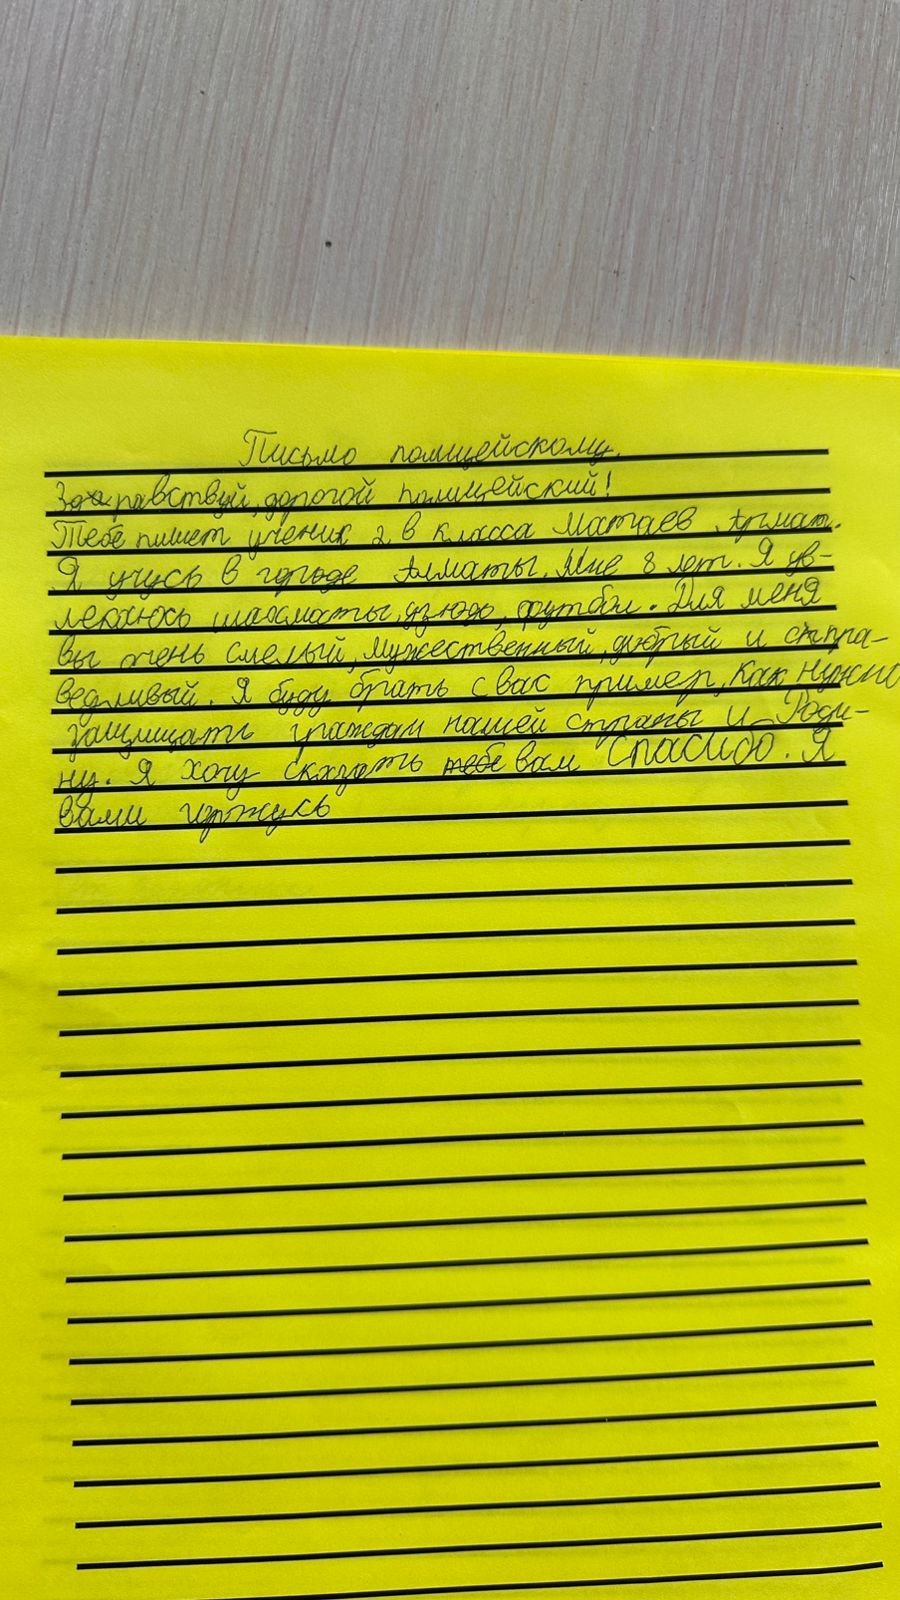 Письмо полицейскому.
Здравствуй, дорогой полицейский!
Тебе пишет ученик 2 в класса Матаев
Я учусь в городе Алматы. Мне 8 лет. Я ув-
лекаюсь шахматы, дзюдо, футбол. Для меня
вы очень смелый, мужественный, добрый и спра-
ведливый. Я буду брать с вас пример, как нужно
защищать граждан нашей страны и Роди-
ну. Я хочу сказать тебе вам Спасибо. Я
вами горжусь